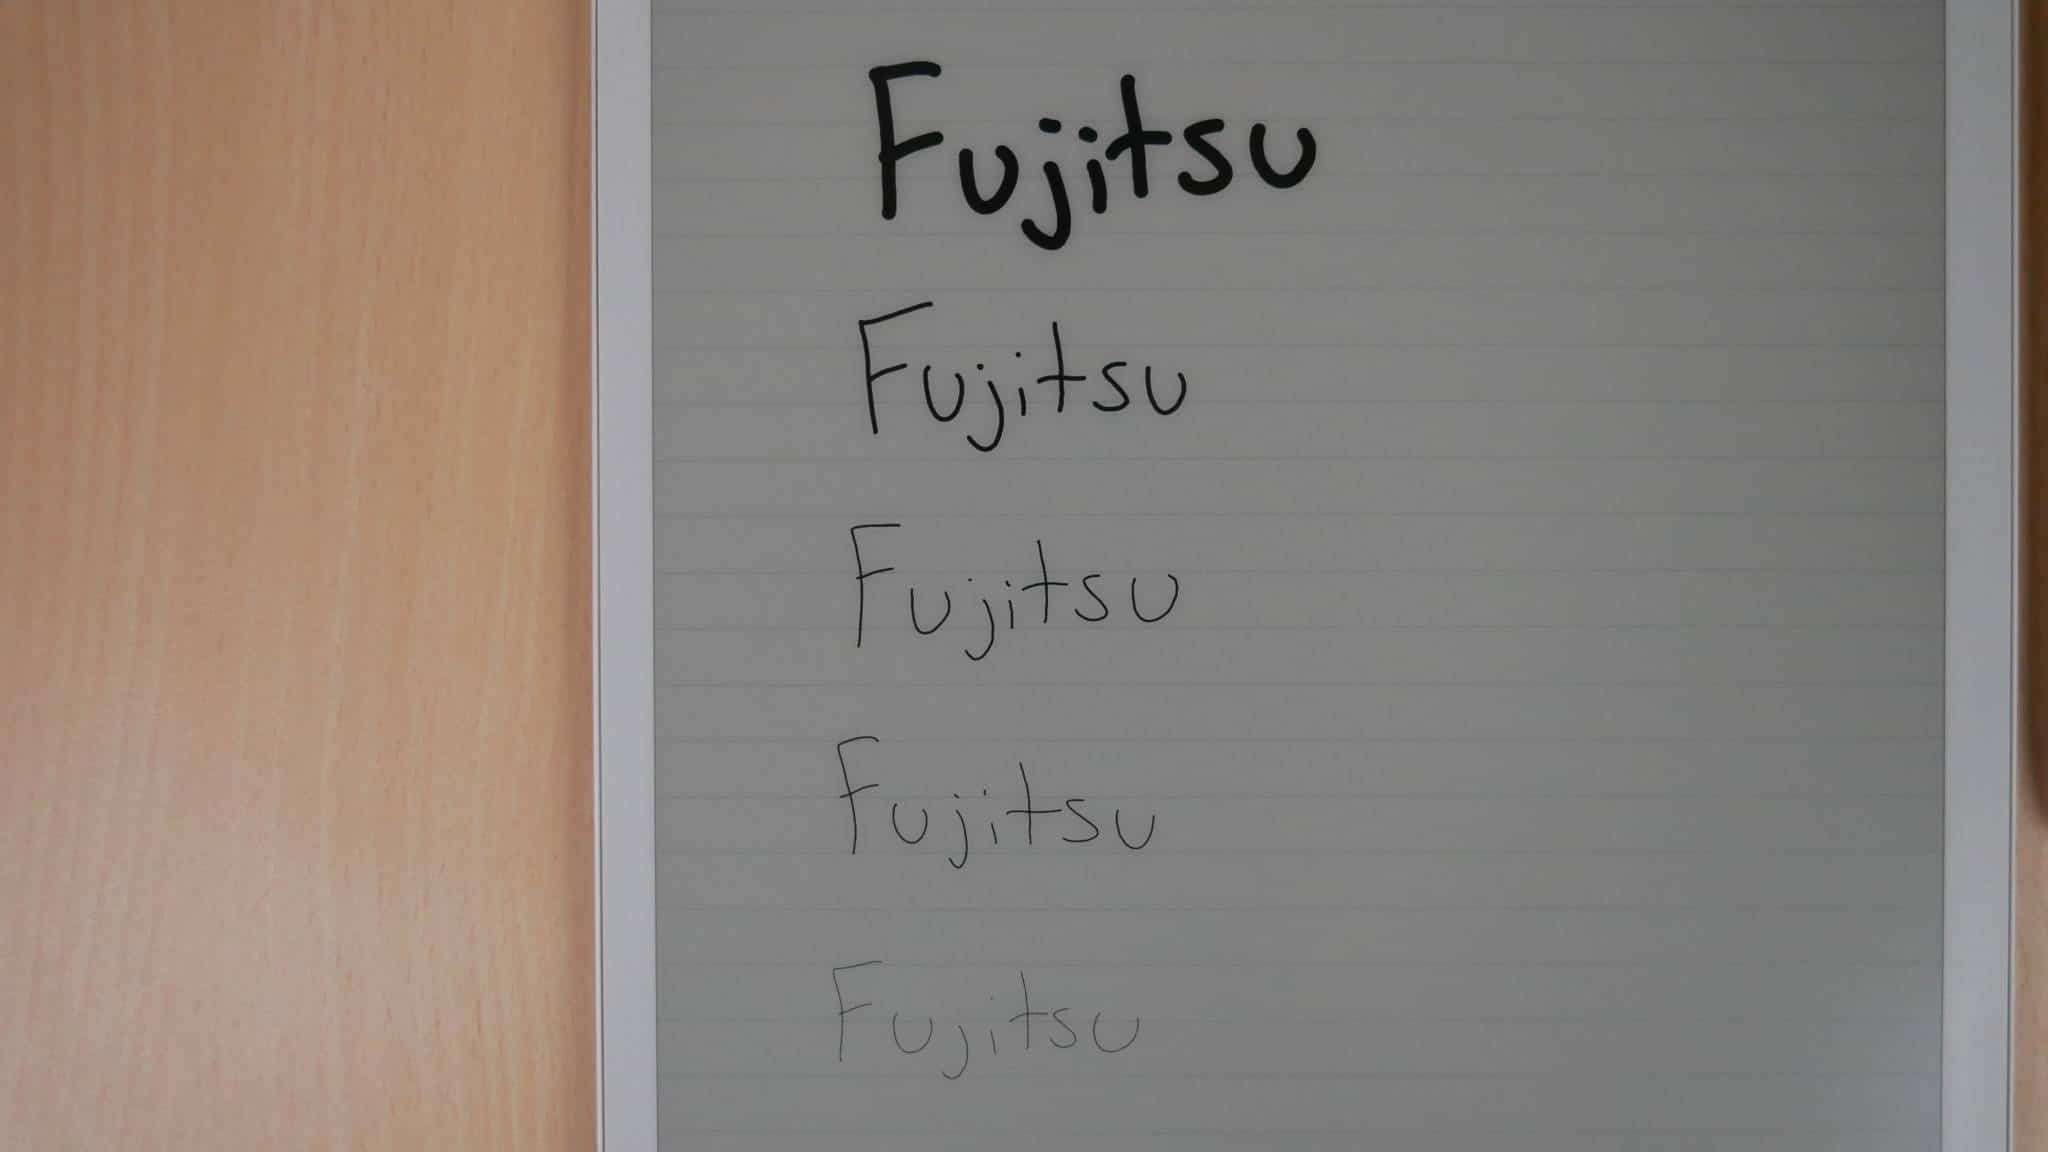 Fujitsu
Fujitsu
Fujitsu
Fujitsu
Fujitsu